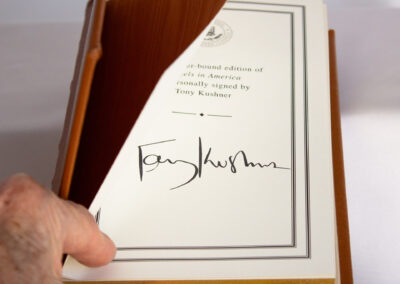 er-bound edition of
els in America
sonally signed by
Tony Kushner
Tony Kushner